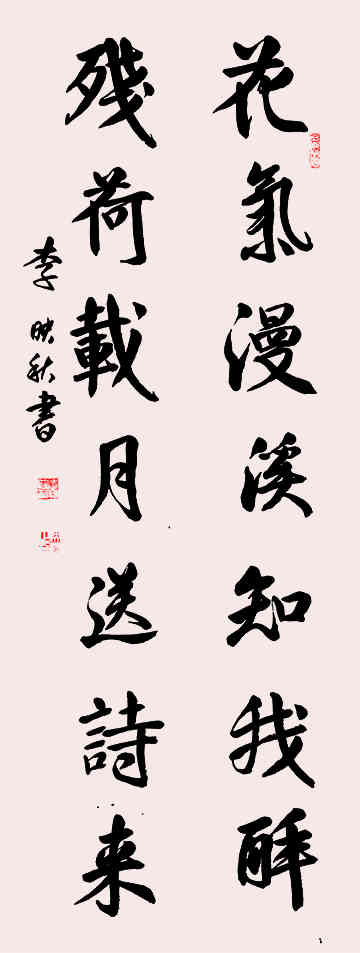 花氣漫溪知我醉
殘荷載月送詩来
李映秋書